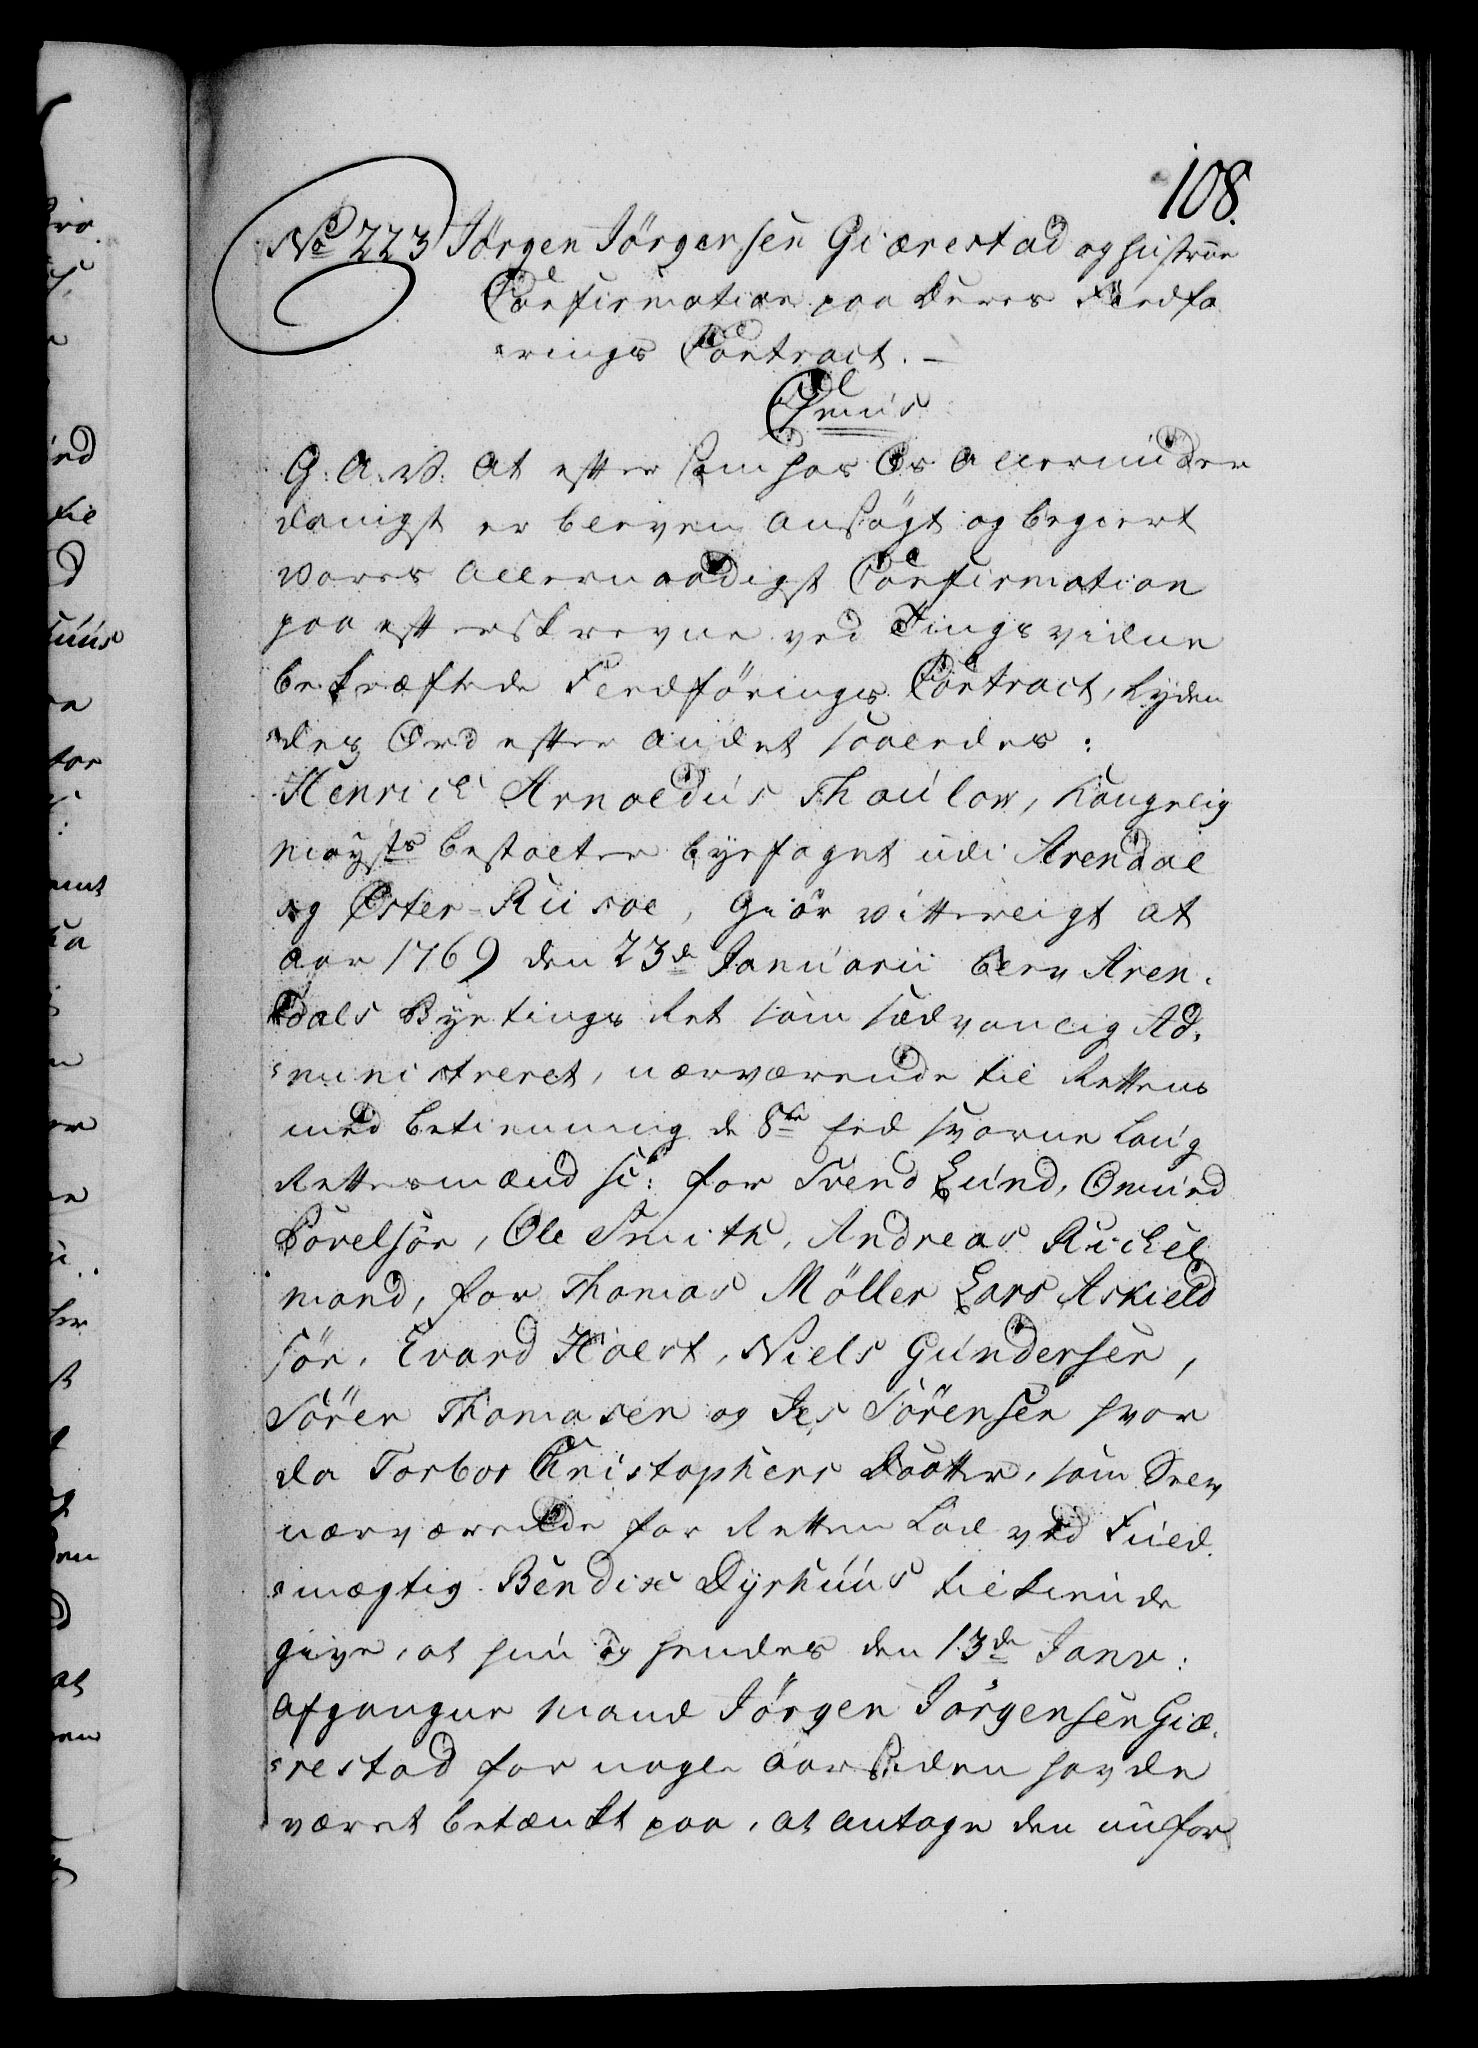 108.
No 223 Jörgen Jörgensen Giærestad og Hustrue
Confirmation paa deres Fledfø
rings Contract. –
Chr: 7mus
G. A. V. At efter som hos Os allerunder
danigst er bleven ansögt og begiert
Vores allernaadigst Confirmation
paa efterskrevne ved Tingsvidne
bekræftede Fledförings Contract, lyden
des Ord efter andet saaledes:
Henrich Arnoldus Thaulow, Kongelig
Mayts bestalter byefoget udi Arendal
og Öster-Riisöe, Giör vitterligt at
aar 1769 den 23de Januarii blev Aren-
dals Byetings Ret som sædvanlig Ad-
ministreret, nærværende til Rettens
med betienning de 8te Eed svorne Laug
Rettesmænd sc: for Svend Lund, Omund
Povelsön, Ole Smith, Andreas Richel
mand, for Thomas Möller Lars Askield
sön, Evard Holst, Niels Gundersen,
Sören Thomasen og Jes Sörensen hvor
da Torbor Christophers Daatter, som blev
nærværende for Retten Lod ved Fuld
mægtig Bendix Dyrhuus tilkiende
give, at hun og hendes den 13de Janv:
afgangne Mand Jörgen Jörgensen Giæ-
restad for nogle aar siden havde
været betænkt paa, at antage den unfor